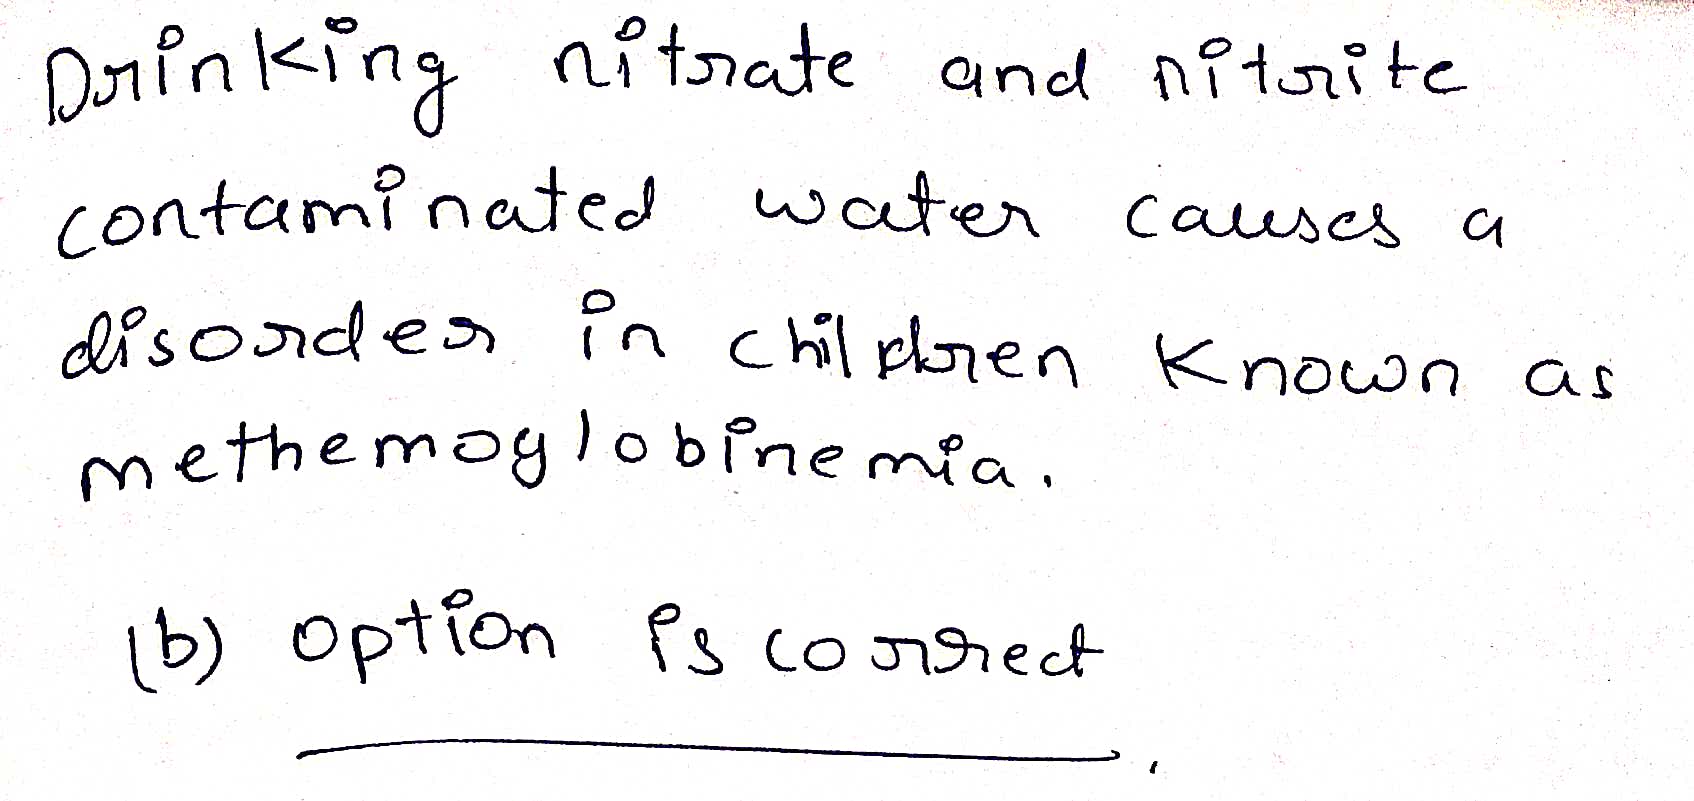 Drinking nitrate and nitrite
contaminated water causes a
disorder in children Known as
methemoglobinemia.
(b) option is correct